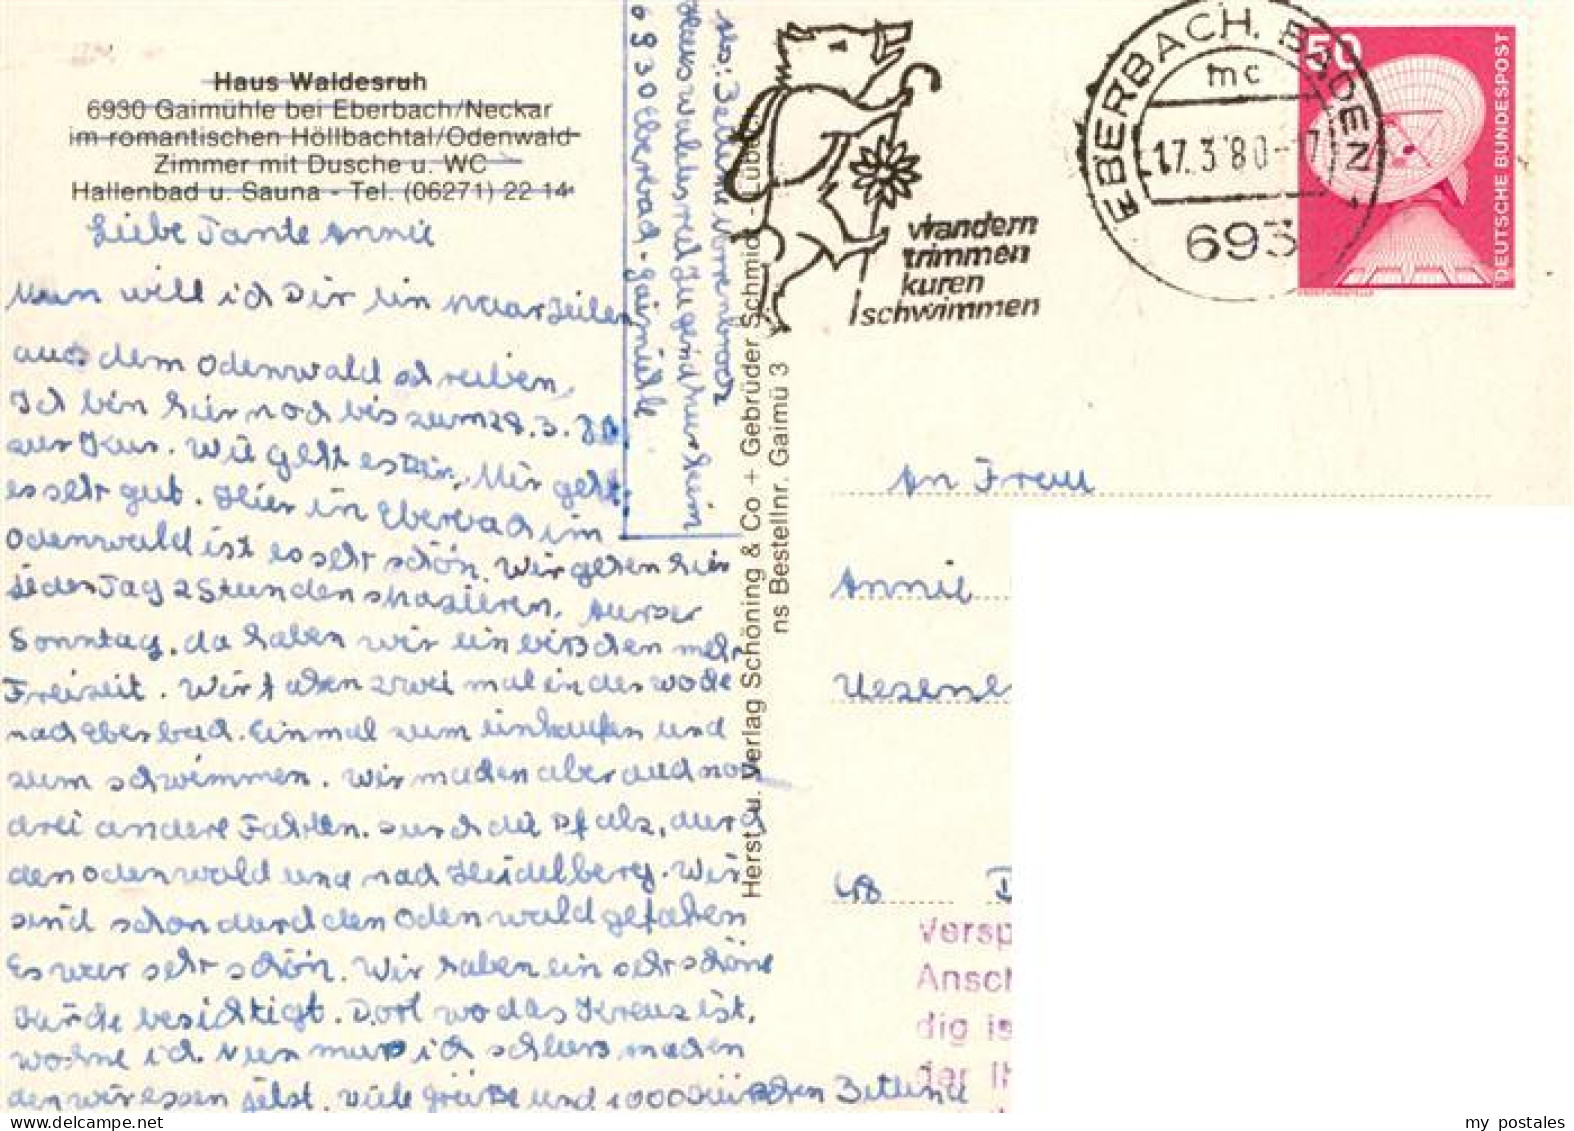 Haus Waldesruh
6930 Gaimühle bei Eberbach/Neckar
im romantischen Höllbachtal/Odenwald
Zimmer mit Dusche u. WC
Hallenbad u. Sauna - Tel. (06271) 22 14
Liebe Tante Annie
Nun will ich Dir ein paar Zeilen
aus dem Odenwald schreiben.
Ich bin hier noch bis zum 28.3.80
zur Kur. Wie geht es Dir. Mir geht
es sehr gut. Hier in Eberbach im
Odenwald ist es sehr schön. Wir gehen hier
jeden Tag 2 Stunden spazieren. Ausser
Sonntag. da haben wir ein bisschen mehr
Freizeit. Wir fahren zwei mal in der Woche
nach Eberbach. Einmal zum einkaufen und
zum schwimmen. Wir machen aber auch noch
drei andere Fahrten. durch die Pfalz, durch
den Odenwald und nach Heidelberg. Wir
sind schon durch den Odenwald gefahren
Es war sehr schön. Wir haben ein sehr schöne
Kirche besichtigt. Dort wo das Kreuz ist,
wohne ich. Nun muss ich schluss machen
den wir essen jetzt. Viele Grüße und 1000 Küsschen Bettina
Abs: Bettina
Haus Waldesruh Jugendkursheim
6930 Eberbach-Gaimühle
Herst. u. Verlag Schöning & Co + Gebrüder Schmidt - Lübe
ns Bestellnr. Gaimü 3
wandern
trimmen
kuren
schwimmen
EBERBACH, BADEN 1
mc
17.3.80-17
693
50
DEUTSCHE BUNDESPOST
An Frau
Annie
48 D
Versp
Ansch
dig is
der Ih
my postales